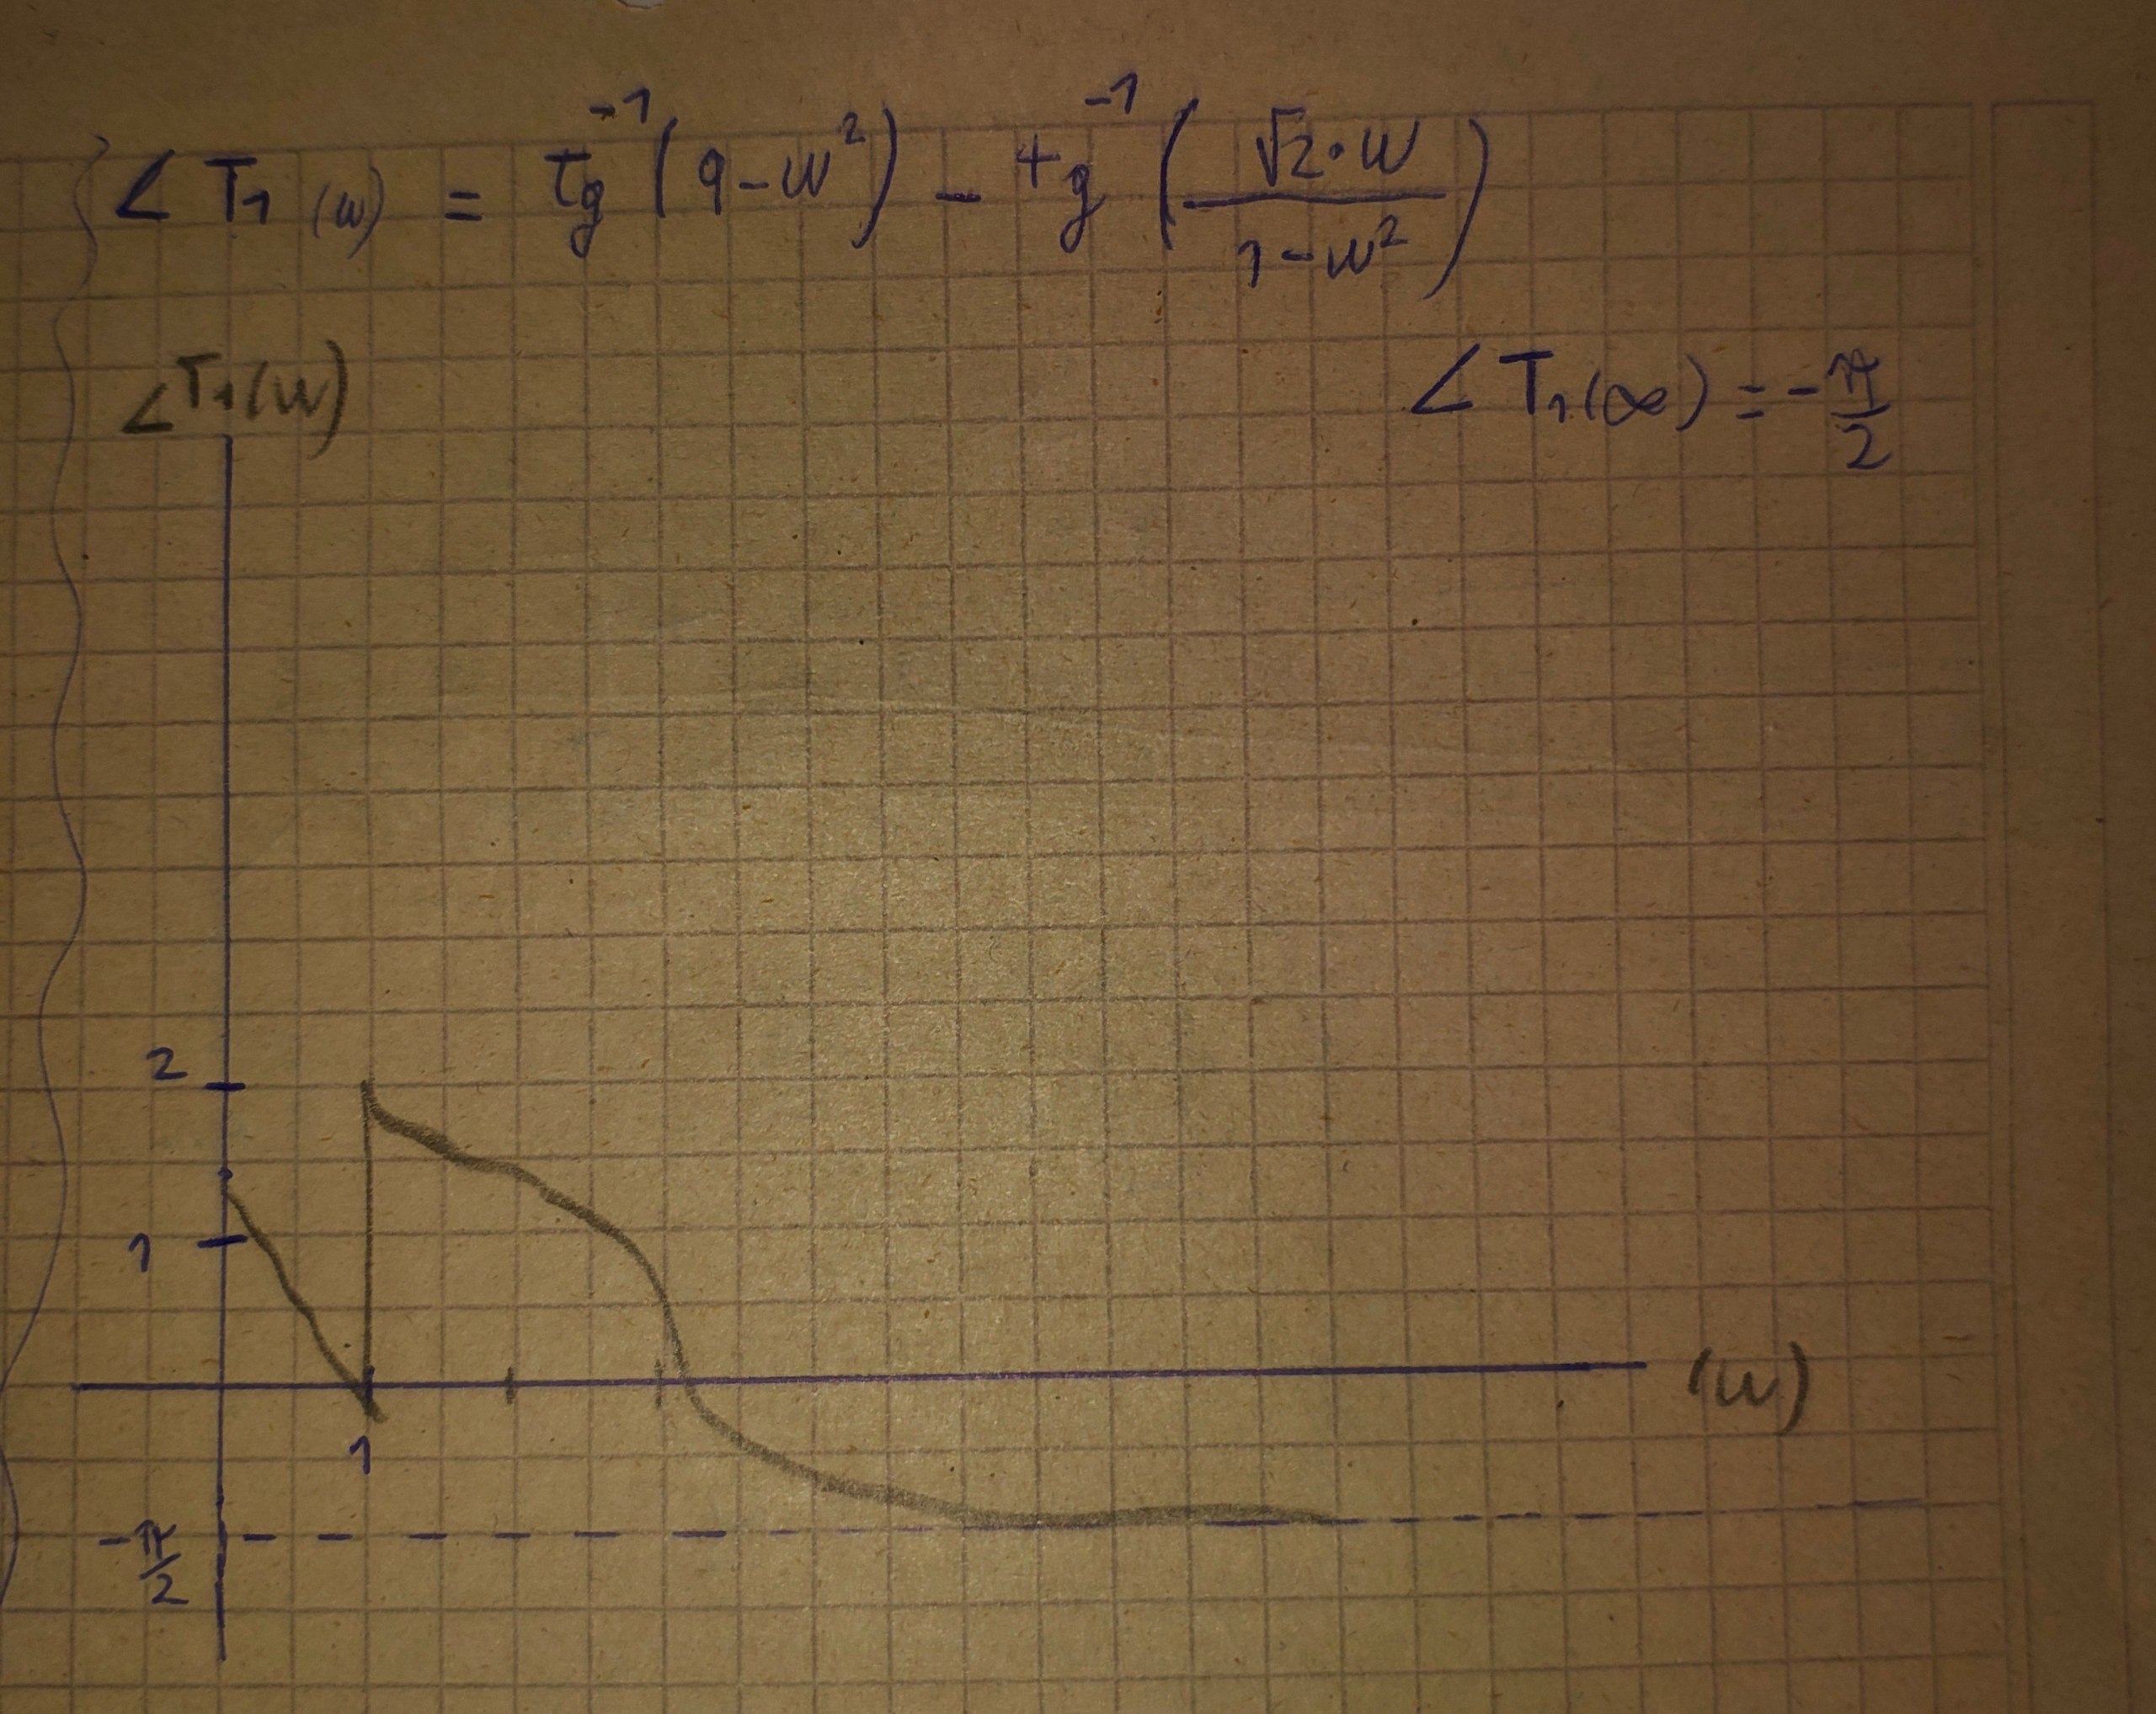 ∠ T₁ (w) = tg⁻¹ (9-w²) - tg⁻¹ (√2·w / 1-w²)
∠T₁(w)
∠ T₁(∞) = -π/2
2
1
(w)
1
-π/2